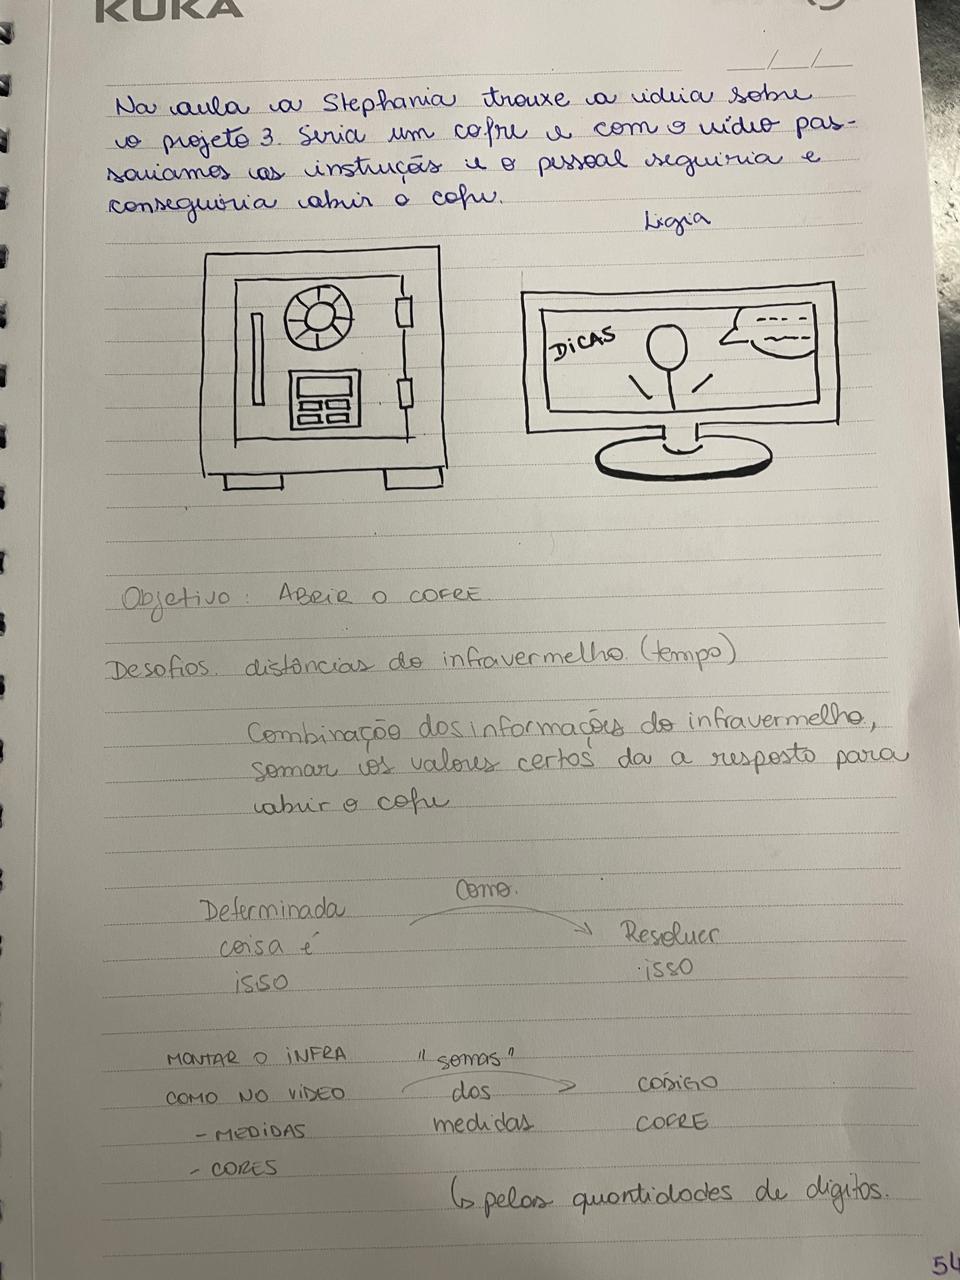 KUKA
Na aula a Stephania trouxe a ideia sobre
o projeto 3. Seria um cofre e com o vídeo pas-
saviamos as instruçãs e o pessoal seguiria e
conseguiria abrir o cofre.
Ligia
DiCAS
Objetivo: ABRIR O COFRE
Desafios. distâncias do infravermelho. (tempo)
Combinação dos informações do infravermelho,
somar os valores certos da a resposto para
abrir o cofre
Como.
Determinada
coisa é
isso
Resolver
isso
MONTAR O iNFRA
COMO NO VIDEO
- MEDIDAS
- CORES
"somas"
dos
medidas
CÓDIGO
COFRE
↳ pelas quantidades de digitos.
54